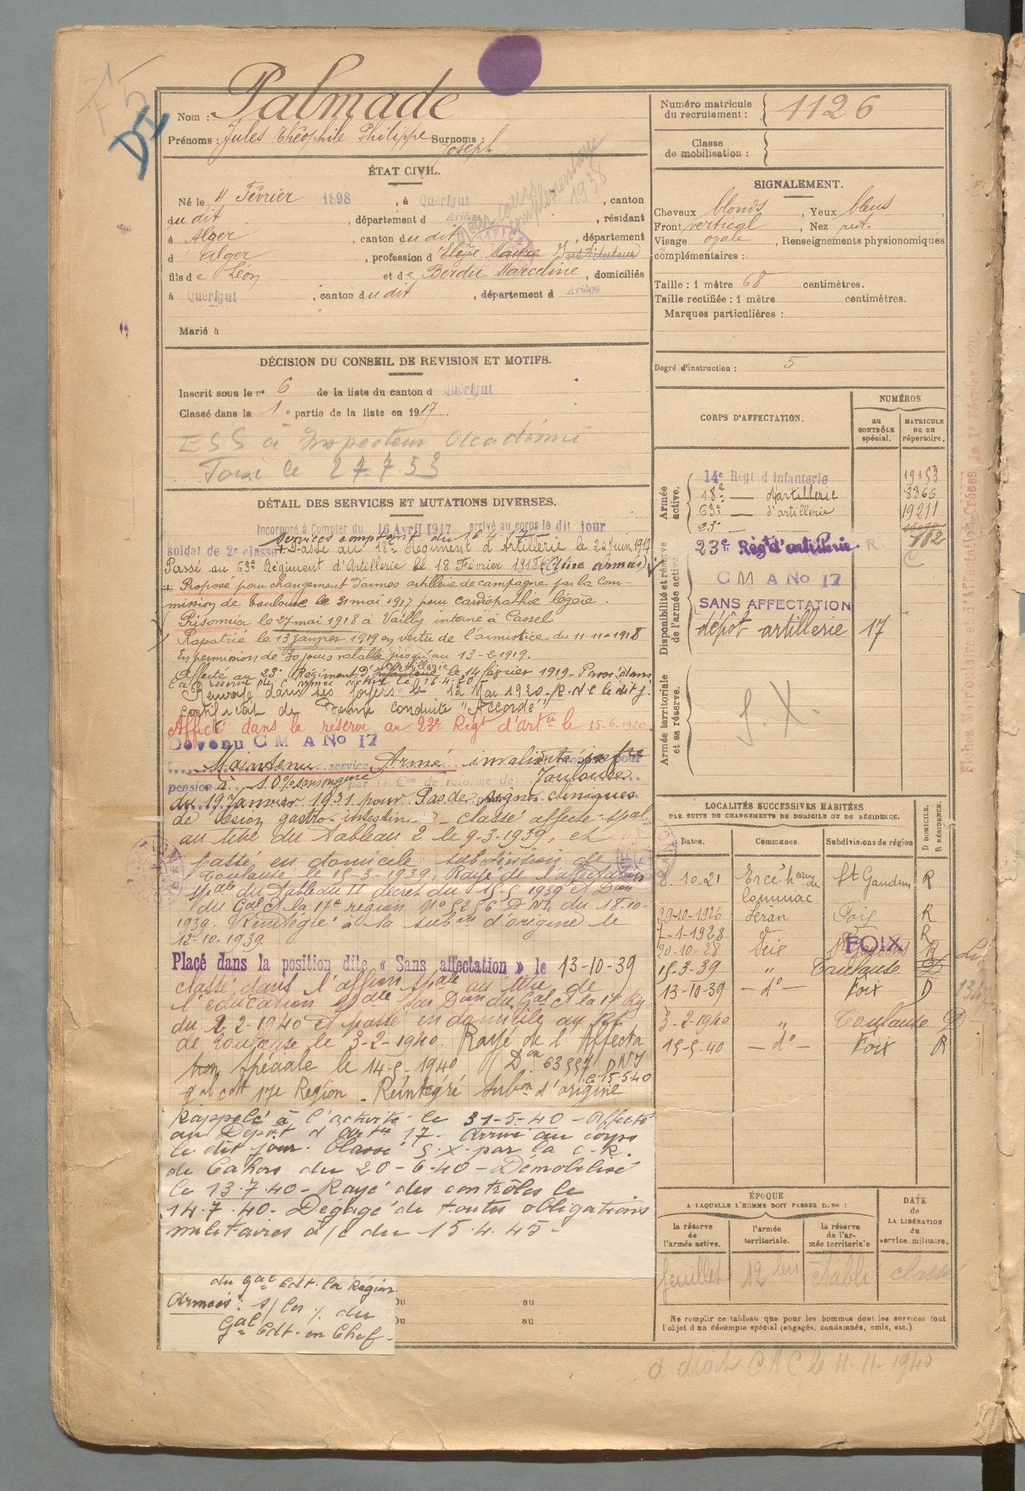 Nom : Palmade
Prénoms : Jules Théophile Philippe Surnoms : Joseph
ÉTAT CIVIL.
Né le 11 Février 1898, à Quérigut, canton
du dit, département d Ariège, résidant
à Alger, canton du dit, département
d'Alger, profession d'Elève Maître Instituteur
fils de Léon et de Bordu Marceline, domiciliés
à Quérigut, canton du dit, département d Ariège
Marié à
Dans cours complémentaire 1938
DÉCISION DU CONSEIL DE REVISION ET MOTIFS.
Inscrit sous le n° 6 de la liste du canton d Quérigut
Classé dans la 1e partie de la liste en 1917.
ESS à Inspecteur Académie
Foix le 27.7.53
DÉTAIL DES SERVICES ET MUTATIONS DIVERSES.
Incorporé à Compter du 16 Avril 1917 arrivé au corps le dit jour
Services comptant du 16.4.17
soldat de 2e classe. Passé au 18e Régiment d'Artillerie le 22 Juin 1917
Passé au 63e Régiment d'Artillerie le 18 Février 1918
Proposé pour changement d'armes artillerie de campagne par la Com-
mission de Toulouse le 31 mai 1917 pour cardiopathie légère.
Prisonnier le 27 mai 1918 à Vailly interné à Cassel
Rapatrié le 13 janvier 1919 en vertu de l'armistice du 11-11-1918
En permission de 30 jours valable jusqu'au 13-2-1919.
Affecté au 23e Régiment d'artillerie le 14 février 1919.
Renvoyé dans ses foyers le 12 Mai 1920
certificat de bonne conduite "Accordé"
Affecté dans la réserve au 23e Régt d'artie le 15-6-1920
Devenu C M A No 17
Maintenu service Armé
pension à 10 % Con de réforme de Toulouse
du 19 Janvier 1931 pour Pas de signes cliniques
de lésion gastro-intestinale classé affecté spal
au titre du Tableau 2 le 9-3-1939, et
passé en domicile subdivision de
Toulouse le 15-3-1939, Rayé de l'affectation
spale du Tableau II décret du
du Gal Ct la 17e région N° 5256 D.N. du 18-10-
1939. Réintégré à la subon d'origine le
13-10-1939.
Placé dans la position dite « Sans affectation » le 13-10-39
classé dans l'affon spale au titre de
l'éducation par Don du Gal Ct la 17 Rg
du 2-2-1940 et passé en domicile au
de Toulouse le 3-2-1940. Rayé de l'Affecta
tion spéciale le 14-5-1940 Don 63557 DN1
gal cdt 17e Région. Réintégré subon d'origine le 15-5-40
Rappelé à l'activité le 31-5-40 - Affecté
au Dépôt d'artie 17. Arrivé au corps
le dit jour. Classé S.X par la C.R.
de Cahors du 20-6-40 - Démobilisé
le 13.7.40 - Rayé des contrôles le
14.7.40 - Dégagé de toutes obligations
militaires à/c du 15.4.45 -
du Gal Cdt la Région
Armois : s/ les % du
Gal Cdt en Chef -
Du au
Du au
Numéro matricule
du recrutement : 1126
Classe
de mobilisation :
SIGNALEMENT.
Cheveux blonds, Yeux bleus
Front vertical, Nez rect.
Visage ovale, Renseignements physionomiques
complémentaires :
Taille : 1 mètre 68 centimètres.
Taille rectifiée : 1 mètre centimètres.
Marques particulières :
Degré d'instruction : 5
CORPS D'AFFECTATION.
NUMÉROS
AU CONTRÔLE spécial.
MATRICULE OU AU répertoire.
Armée active.
14e Régt d'Infanterie 19153
18e — d'artillerie 8366
63e — d'artillerie 19211
23e
Disponibilité et réserve de l'armée active
23e Régt d'artillerie R 112
C M A No 17 C
SANS AFFECTATION
dépôt artillerie 17
Armée territoriale et sa réserve.
S.X.
LOCALITÉS SUCCESSIVES HABITÉES
PAR SUITE DE CHANGEMENTS DE DOMICILE OU DE RÉSIDENCE.
Dates. Communes. Subdivisions de région D DOMICILE. R RÉSIDENCE.
8.10.21 Ercé heau de Cominac St Gaudens R
29-10-1926 Léran Foix R
7-1-1928 d° R
20-10-28 Foix FOIX R
15.3-39 " Toulouse D
13-10-39 — d° — Foix D
3-2-1940 " Toulouse D
15-5-40 — d° — Foix R
ÉPOQUE
A LAQUELLE L'HOMME DOIT PASSER DANS :
la réserve de l'armée active.
l'armée territoriale.
la réserve de l'armée territoriale
DATE DE LA LIBÉRATION du service militaire.
feuillet 12 bis établi classé
Ne remplir ce tableau que pour les hommes dont les services font
l'objet d'un décompte spécial (engagés, condamnés, omis, etc.).
a droit C A C le 11-11-1940